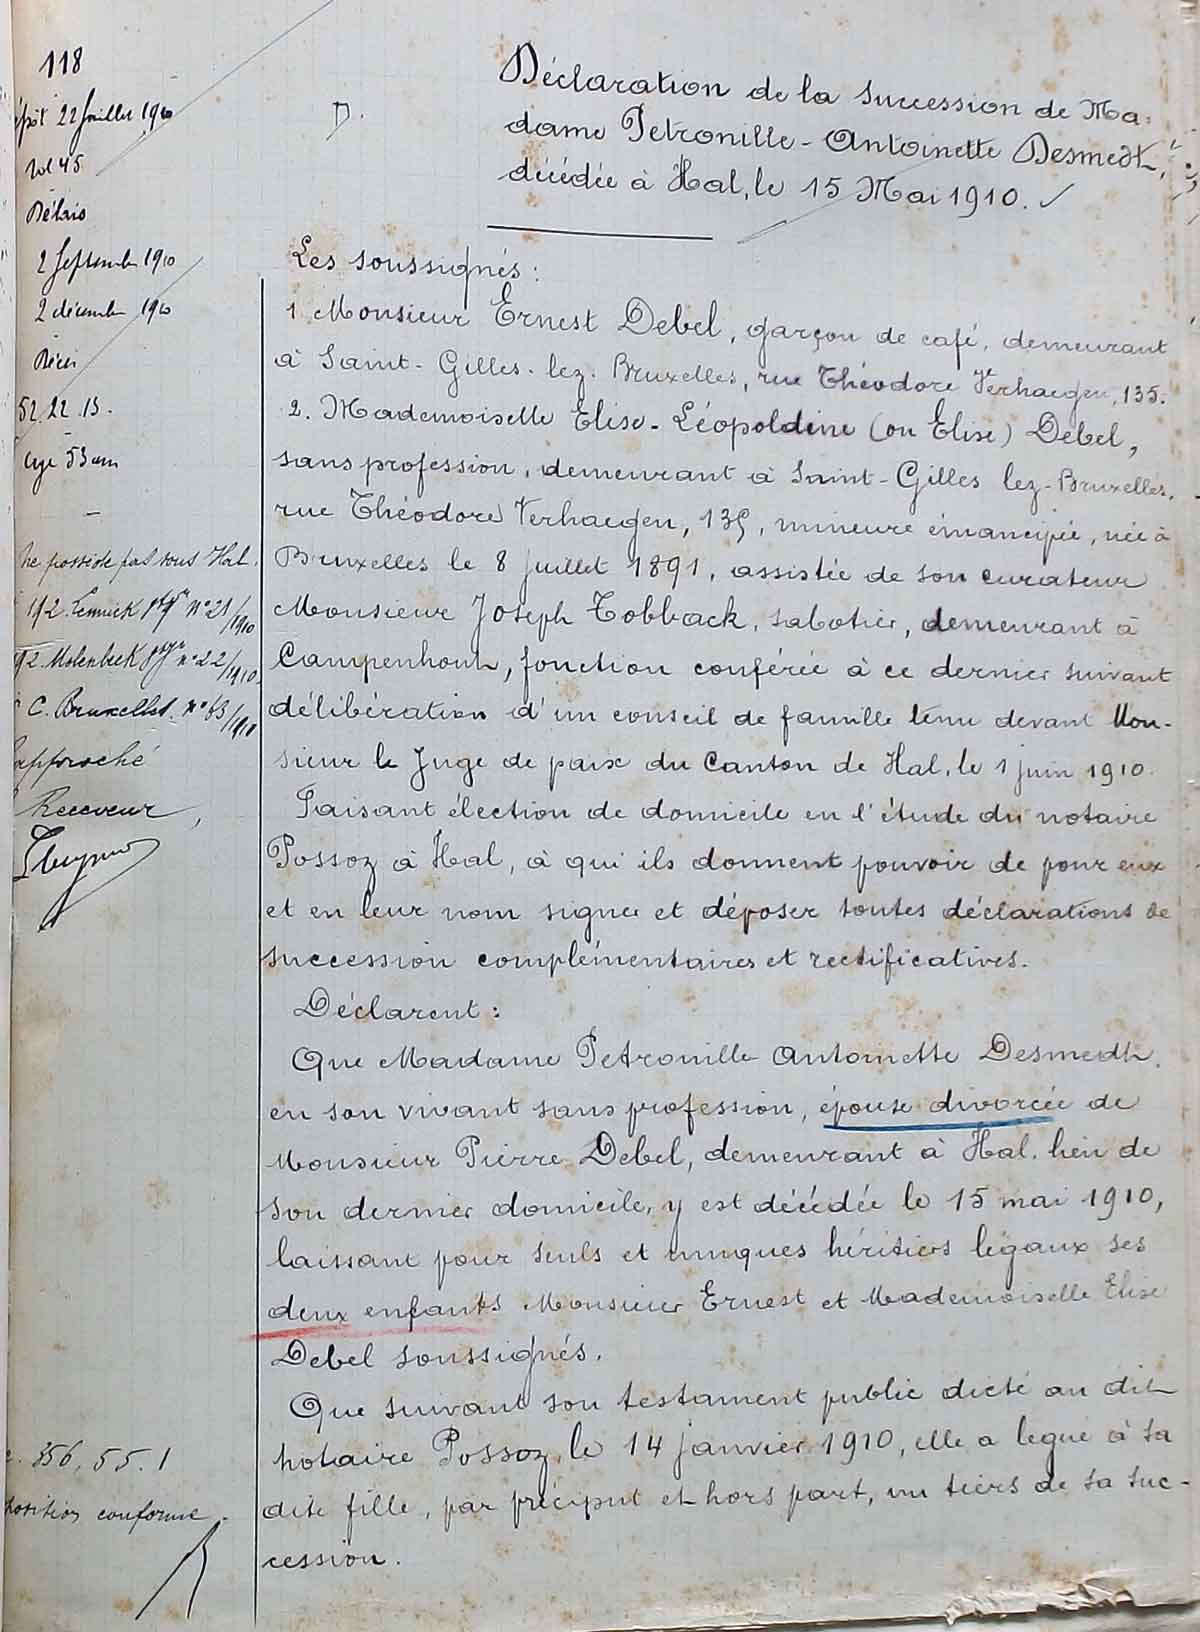 118
22 Juillet 1910
Vol 45
Délais
2 Septembre 1910
2 décembre 1910
Décès
52. 22. 15.
age 53 ans
ne possède pas sous Hal.
192. Lennick n° 21/1910
192. Molenbeek n° 22/1910
C. Bruxelles. n° 63/1910
approché
Receveur
c. 356, 55. 1
position conforme.
D.
Déclaration de la succession de Ma-
dame Petronille-Antoinette Desmedt,
décédée à Hal, le 15 Mai 1910. ✓
Les soussignés :
1. Monsieur Ernest Debel, garçon de café, demeurant
à Saint-Gilles-lez-Bruxelles, rue Théodore Verhaegen, 135.
2. Mademoiselle Elise-Léopoldine (ou Elise) Debel,
sans profession, demeurant à Saint-Gilles lez-Bruxelles,
rue Théodore Verhaegen, 135, mineure émancipée, née à
Bruxelles le 8 juillet 1891, assistée de son curateur
Monsieur Joseph Tobback, sabotier, demeurant à
Campenhout, fonction conférée à ce dernier suivant
délibération d'un conseil de famille tenu devant Mon-
sieur le Juge de paix du Canton de Hal, le 1 juin 1910.
Faisant élection de domicile en l'étude du notaire
Possoz à Hal, à qui ils donnent pouvoir de pour eux
et en leur nom signer et déposer toutes déclarations de
succession complémentaires et rectificatives.
Déclarent :
Que Madame Petronille Antoinette Desmedt,
en son vivant sans profession, épouse divorcée de
Monsieur Pierre Debel, demeurant à Hal, lieu de
son dernier domicile, y est décédée le 15 mai 1910,
laissant pour seuls et uniques héritiers légaux ses
deux enfants Monsieur Ernest et Mademoiselle Elise
Debel soussignés.
Que suivant son testament public dicté au dit
notaire Possoz, le 14 janvier 1910, elle a légué à sa
dite fille, par préciput et hors part, un tiers de sa suc-
cession.